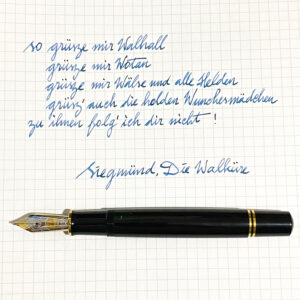 so grüsze mir Walhall
grüsze mir Wotan
grüsze mir Wälse und alle Helden
grüsz' auch die holden Wunschesmädchen
zu ihnen folg' ich dir nicht !
Siegmünd, Die Walküre